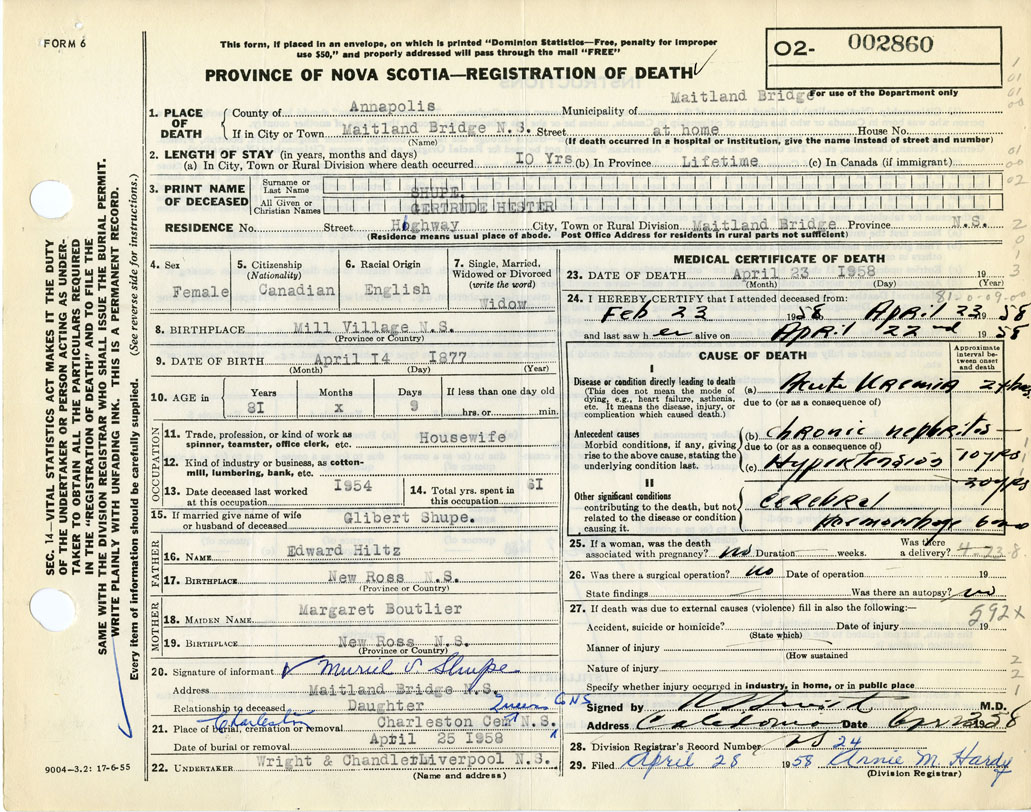 FORM 6
This form, if placed in an envelope, on which is printed "Dominion Statistics—Free, penalty for improper
use $50," and properly addressed will pass through the mail "FREE"
O2- 002860
PROVINCE OF NOVA SCOTIA—REGISTRATION OF DEATH
For use of the Department only
1. PLACE OF DEATH
County of Annapolis Municipality of Maitland Bridge
If in City or Town Maitland Bridge N.S. Street at home House No.
(Name) (If death occurred in a hospital or institution, give the name instead of street and number)
2. LENGTH OF STAY (in years, months and days)
(a) In City, Town or Rural Division where death occurred 10 Yrs (b) In Province Lifetime (c) In Canada (if immigrant)
3. PRINT NAME OF DECEASED
Surname or Last Name SHUPE.
All Given or Christian Names GERTRUDE HESTER
RESIDENCE No. Street Highway City, Town or Rural Division Maitland Bridge Province N.S.
(Residence means usual place of abode. Post Office Address for residents in rural parts not sufficient)
4. Sex
Female
5. Citizenship
(Nationality)
Canadian
6. Racial Origin
English
7. Single, Married,
Widowed or Divorced
(write the word)
Widow
8. BIRTHPLACE Mill Village N.S.
(Province or Country)
9. DATE OF BIRTH April I4 I877
(Month) (Day) (Year)
10. AGE in
Years Months Days If less than one day old
8I x 9 hrs. or min.
OCCUPATION
11. Trade, profession, or kind of work as
spinner, teamster, office clerk, etc. Housewife
12. Kind of industry or business, as cotton-
mill, lumbering, bank, etc.
13. Date deceased last worked
at this occupation I954
14. Total yrs. spent in
this occupation 6I
15. If married give name of wife
or husband of deceased Glibert Shupe.
FATHER
16. NAME Edward Hiltz
17. BIRTHPLACE New Ross N.S.
(Province or Country)
MOTHER
18. MAIDEN NAME Margaret Boutlier
19. BIRTHPLACE New Ross N.S.
(Province or Country)
20. Signature of informant Muriel V. Shupe
Address Maitland Bridge N.S.
Relationship to deceased Daughter Queens Co NS
21. Place of burial, cremation or removal Charleston Cem N.S.
Charleston
Date of burial or removal April 25 I958
22. UNDERTAKER Wright & Chandler Liverpool N.S.
(Name and address)
MEDICAL CERTIFICATE OF DEATH
23. DATE OF DEATH April 23 I958 19
(Month) (Day) (Year)
24. I HEREBY CERTIFY that I attended deceased from:
Feb 23 1958 April 23 1958
and last saw h er alive on April 22nd 1958
CAUSE OF DEATH
Approximate
interval be-
tween onset
and death
I
Disease or condition directly leading to death
(This does not mean the mode of
dying, e.g., heart failure, asthenia,
etc. It means the disease, injury, or
complication which caused death.)
(a) Acute Uraemia
due to (or as a consequence of)
Antecedent causes
Morbid conditions, if any, giving
rise to the above cause, stating the
underlying condition last.
(b) Chronic nephritis
due to (or as a consequence of)
(c) Hypertension 10 yrs
II
Other significant conditions
contributing to the death, but not
related to the disease or condition
causing it.
Cerebral
Haemorrhage
25. If a woman, was the death
associated with pregnancy? no Duration weeks. Was there
a delivery?
26. Was there a surgical operation? no Date of operation 19
State findings Was there an autopsy? no
27. If death was due to external causes (violence) fill in also the following:—
592x
Accident, suicide or homicide? Date of injury 19
(State which)
Manner of injury
(How sustained
Nature of injury
Specify whether injury occurred in industry, in home, or in public place
Signed by M.D.
Address Caledonia Date
28. Division Registrar's Record Number 24
29. Filed April 28 1958 Annie M. Hardy
(Division Registrar)
SEC. 14—VITAL STATISTICS ACT MAKES IT THE DUTY
OF THE UNDERTAKER OR PERSON ACTING AS UNDER-
TAKER TO OBTAIN ALL THE PARTICULARS REQUIRED
IN THE "REGISTRATION OF DEATH" AND TO FILE THE
SAME WITH THE DIVISION REGISTRAR WHO SHALL ISSUE THE BURIAL PERMIT.
WRITE PLAINLY WITH UNFADING INK. THIS IS A PERMANENT RECORD.
Every item of information should be carefully supplied. (See reverse side for instructions.)
9004—3.2: 17-6-55